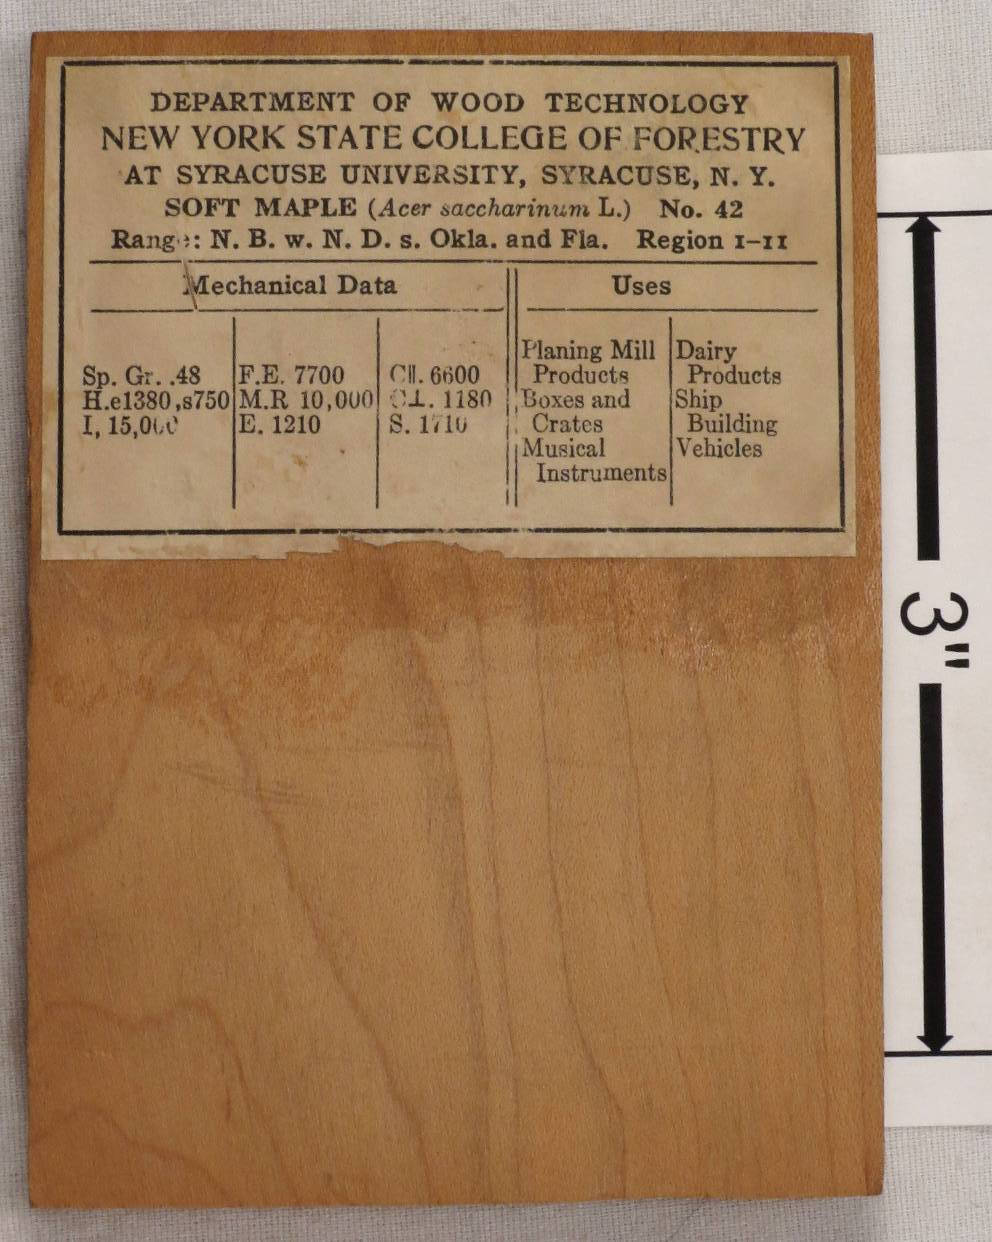 DEPARTMENT OF WOOD TECHNOLOGY
NEW YORK STATE COLLEGE OF FORESTRY
AT SYRACUSE UNIVERSITY, SYRACUSE, N. Y.
SOFT MAPLE (Acer saccharinum L.) No. 42
Range: N. B. w. N. D. s. Okla. and Fla. Region 1-11
Mechanical Data
Sp. Gr. .48
H.e1380,s750
I, 15,000
F.E. 7700
M.R 10,000
E. 1210
C||. 6600
C⊥. 1180
S. 1710
Uses
Planing Mill
Products
Boxes and
Crates
Musical
Instruments
Dairy
Products
Ship
Building
Vehicles
3"